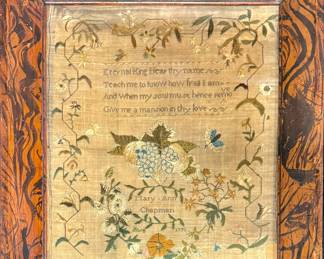 Eternal King thy name
Teach me to know how frail I am
And When my soul must hence
Give me a mansion in thy love
Mary Ann
Chapman